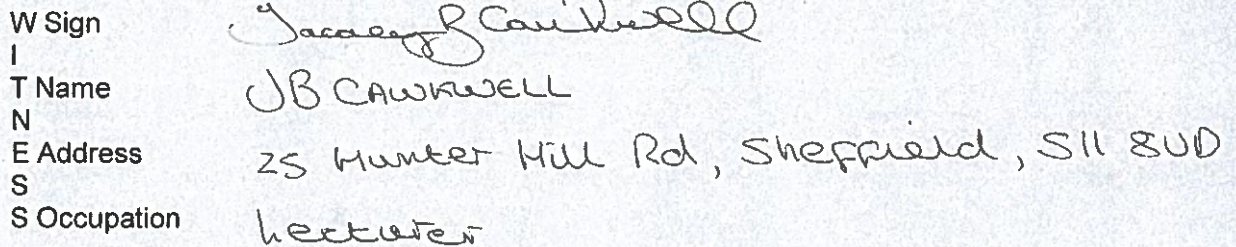 W Sign
I
T Name JB CAWKWELL
N
E Address 25 Hunter Hill Rd, Sheffield, S11 8UD
S
S Occupation Lecturer